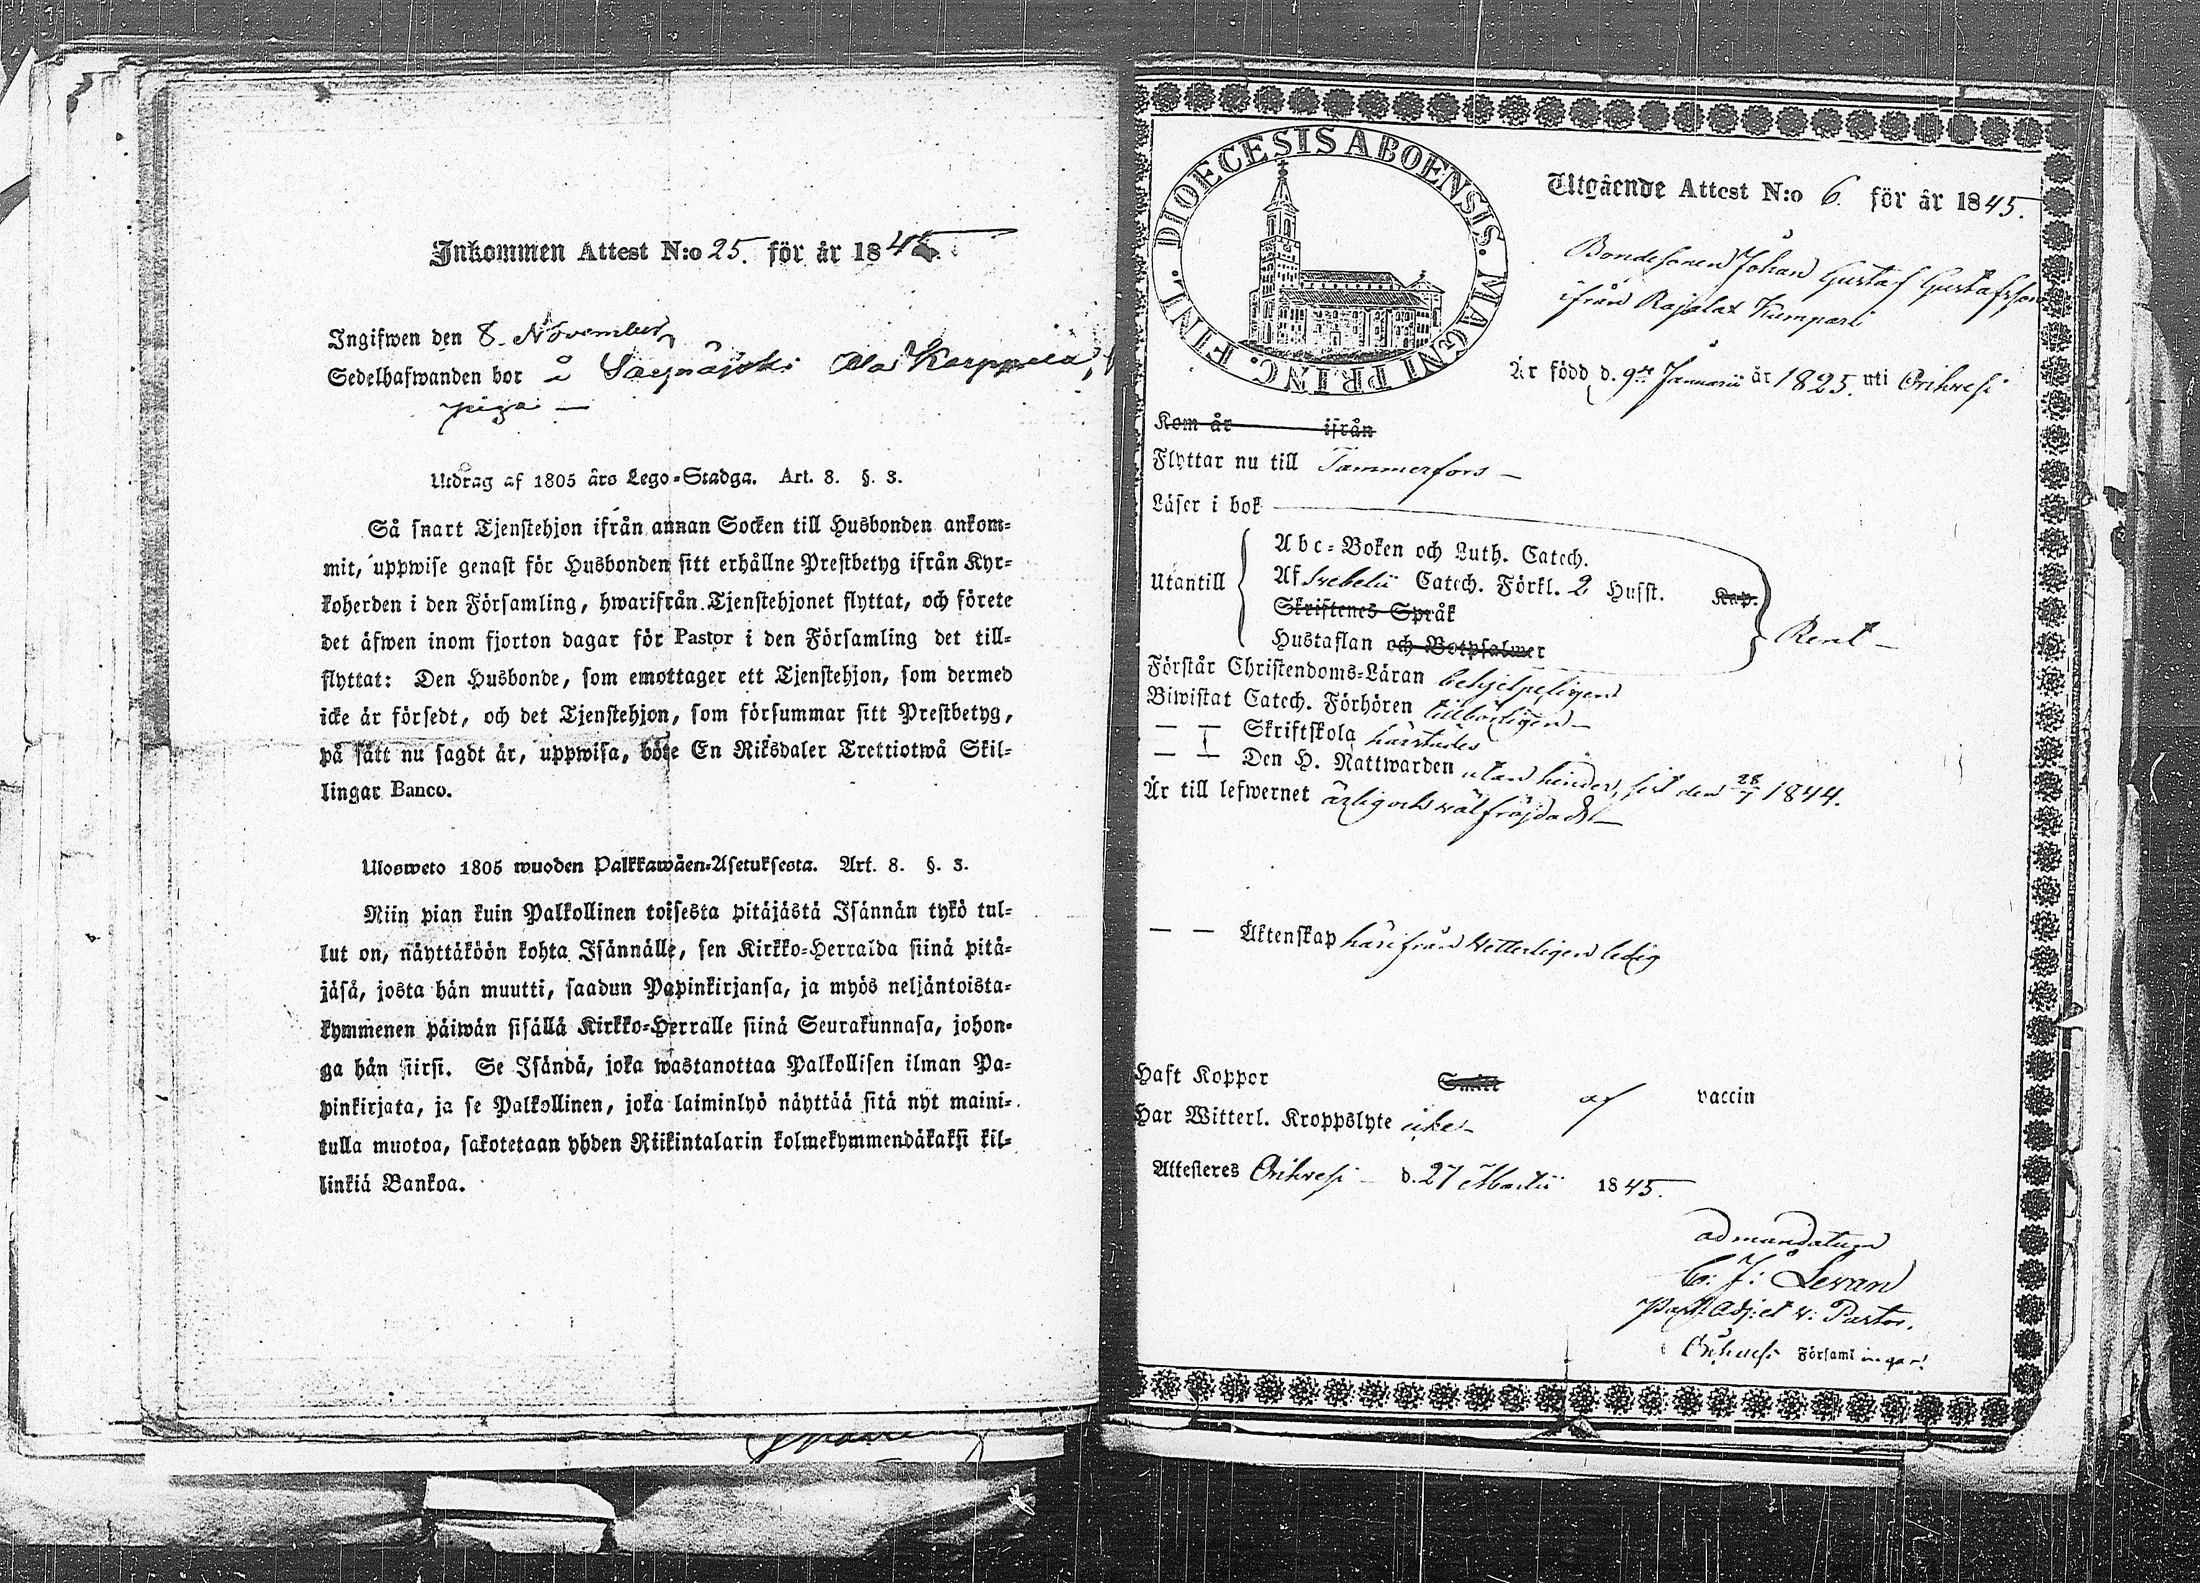 Inkommen Attest N:o 25. för år 1845.
Ingifwen den 8. November
Sedelhafwanden bor å
piga —
Utdrag af 1805 års Lego-Stadga. Art. 8. §. 3.
Så snart Tjenstehjon ifrån annan Socken till Husbonden ankom-
mit, uppwise genast för Husbonden sitt erhållne Prestbetyg ifrån Kyr-
koherden i den Församling, hwarifrån Tjenstehjonet flyttat, och förete
det äfwen inom fjorton dagar för Pastor i den Församling det till-
flyttat: Den Husbonde, som emottager ett Tjenstehjon, som dermed
icke är försedt, och det Tjenstehjon, som försummar sitt Prestbetyg,
på sätt nu sagdt är, uppwisa, böte En Riksdaler Trettiotwå Skil-
lingar Banco.
Ulosweto 1805 wuoden Palkkawäen-Asetuksesta. Art. 8. §. 3.
Niin pian kuin Palkollinen toisesta pitäjästä Isännän tykö tul-
lut on, näyttäköön kohta Isännälle, sen Kirkko-Herralda siinä pitä-
jäsä, josta hän muutti, saadun Papinkirjansa, ja myös neljäntoista-
kymmenen päiwän sisällä Kirkko-Herralle siinä Seurakunnasa, johon-
ga hän siirsi. Se Isändä, joka wastanottaa Palkollisen ilman Pa-
pinkirjata, ja se Palkollinen, joka laiminlyö näyttää sitä nyt maini-
tulla muotoa, sakotetaan yhden Riikintalarin kolmekymmendäkaksi kil-
linkiä Bankoa.
DIOECESIS ABOENSIS. MAGNI PRINC. FINL.
Utgående Attest N:o 6. för år 1845.
Bondesonen Johan Gustaf Gustafsson
ifrån Rajalax Kumpari
Är född d. 9de Januarii år 1825. uti Orihvesi
Kom år ifrån
Flyttar nu till Tammerfors —
Läser i bok
Utantill
Abc-Boken och Luth. Catech.
Af Svebelii Catech. Förkl. 2 Husst. Kap.
Skriftenes Språk
Hustaflan och Botpsalmer
Rent —
Förstår Christendoms-Läran behjelpeligen
Biwistat Catech. Förhören tillbörligen —
— — Skriftskola härstädes
— — Den H. Nattwarden utan hinder, sist den 28/7 1844.
Är till lefwernet ärlig och wälfräjdad —
— — Äktenskap härifrån Vetterligen ledig
Haft Koppor Smitt af vaccin
Har Witterl. Kroppslyte icke —
Attesteres Orihvesi — d. 27 Martii 1845.
ad mandatum
C: J: Levan
Past: Adj: et v: Pastor.
i Orihvesi Församlingar.